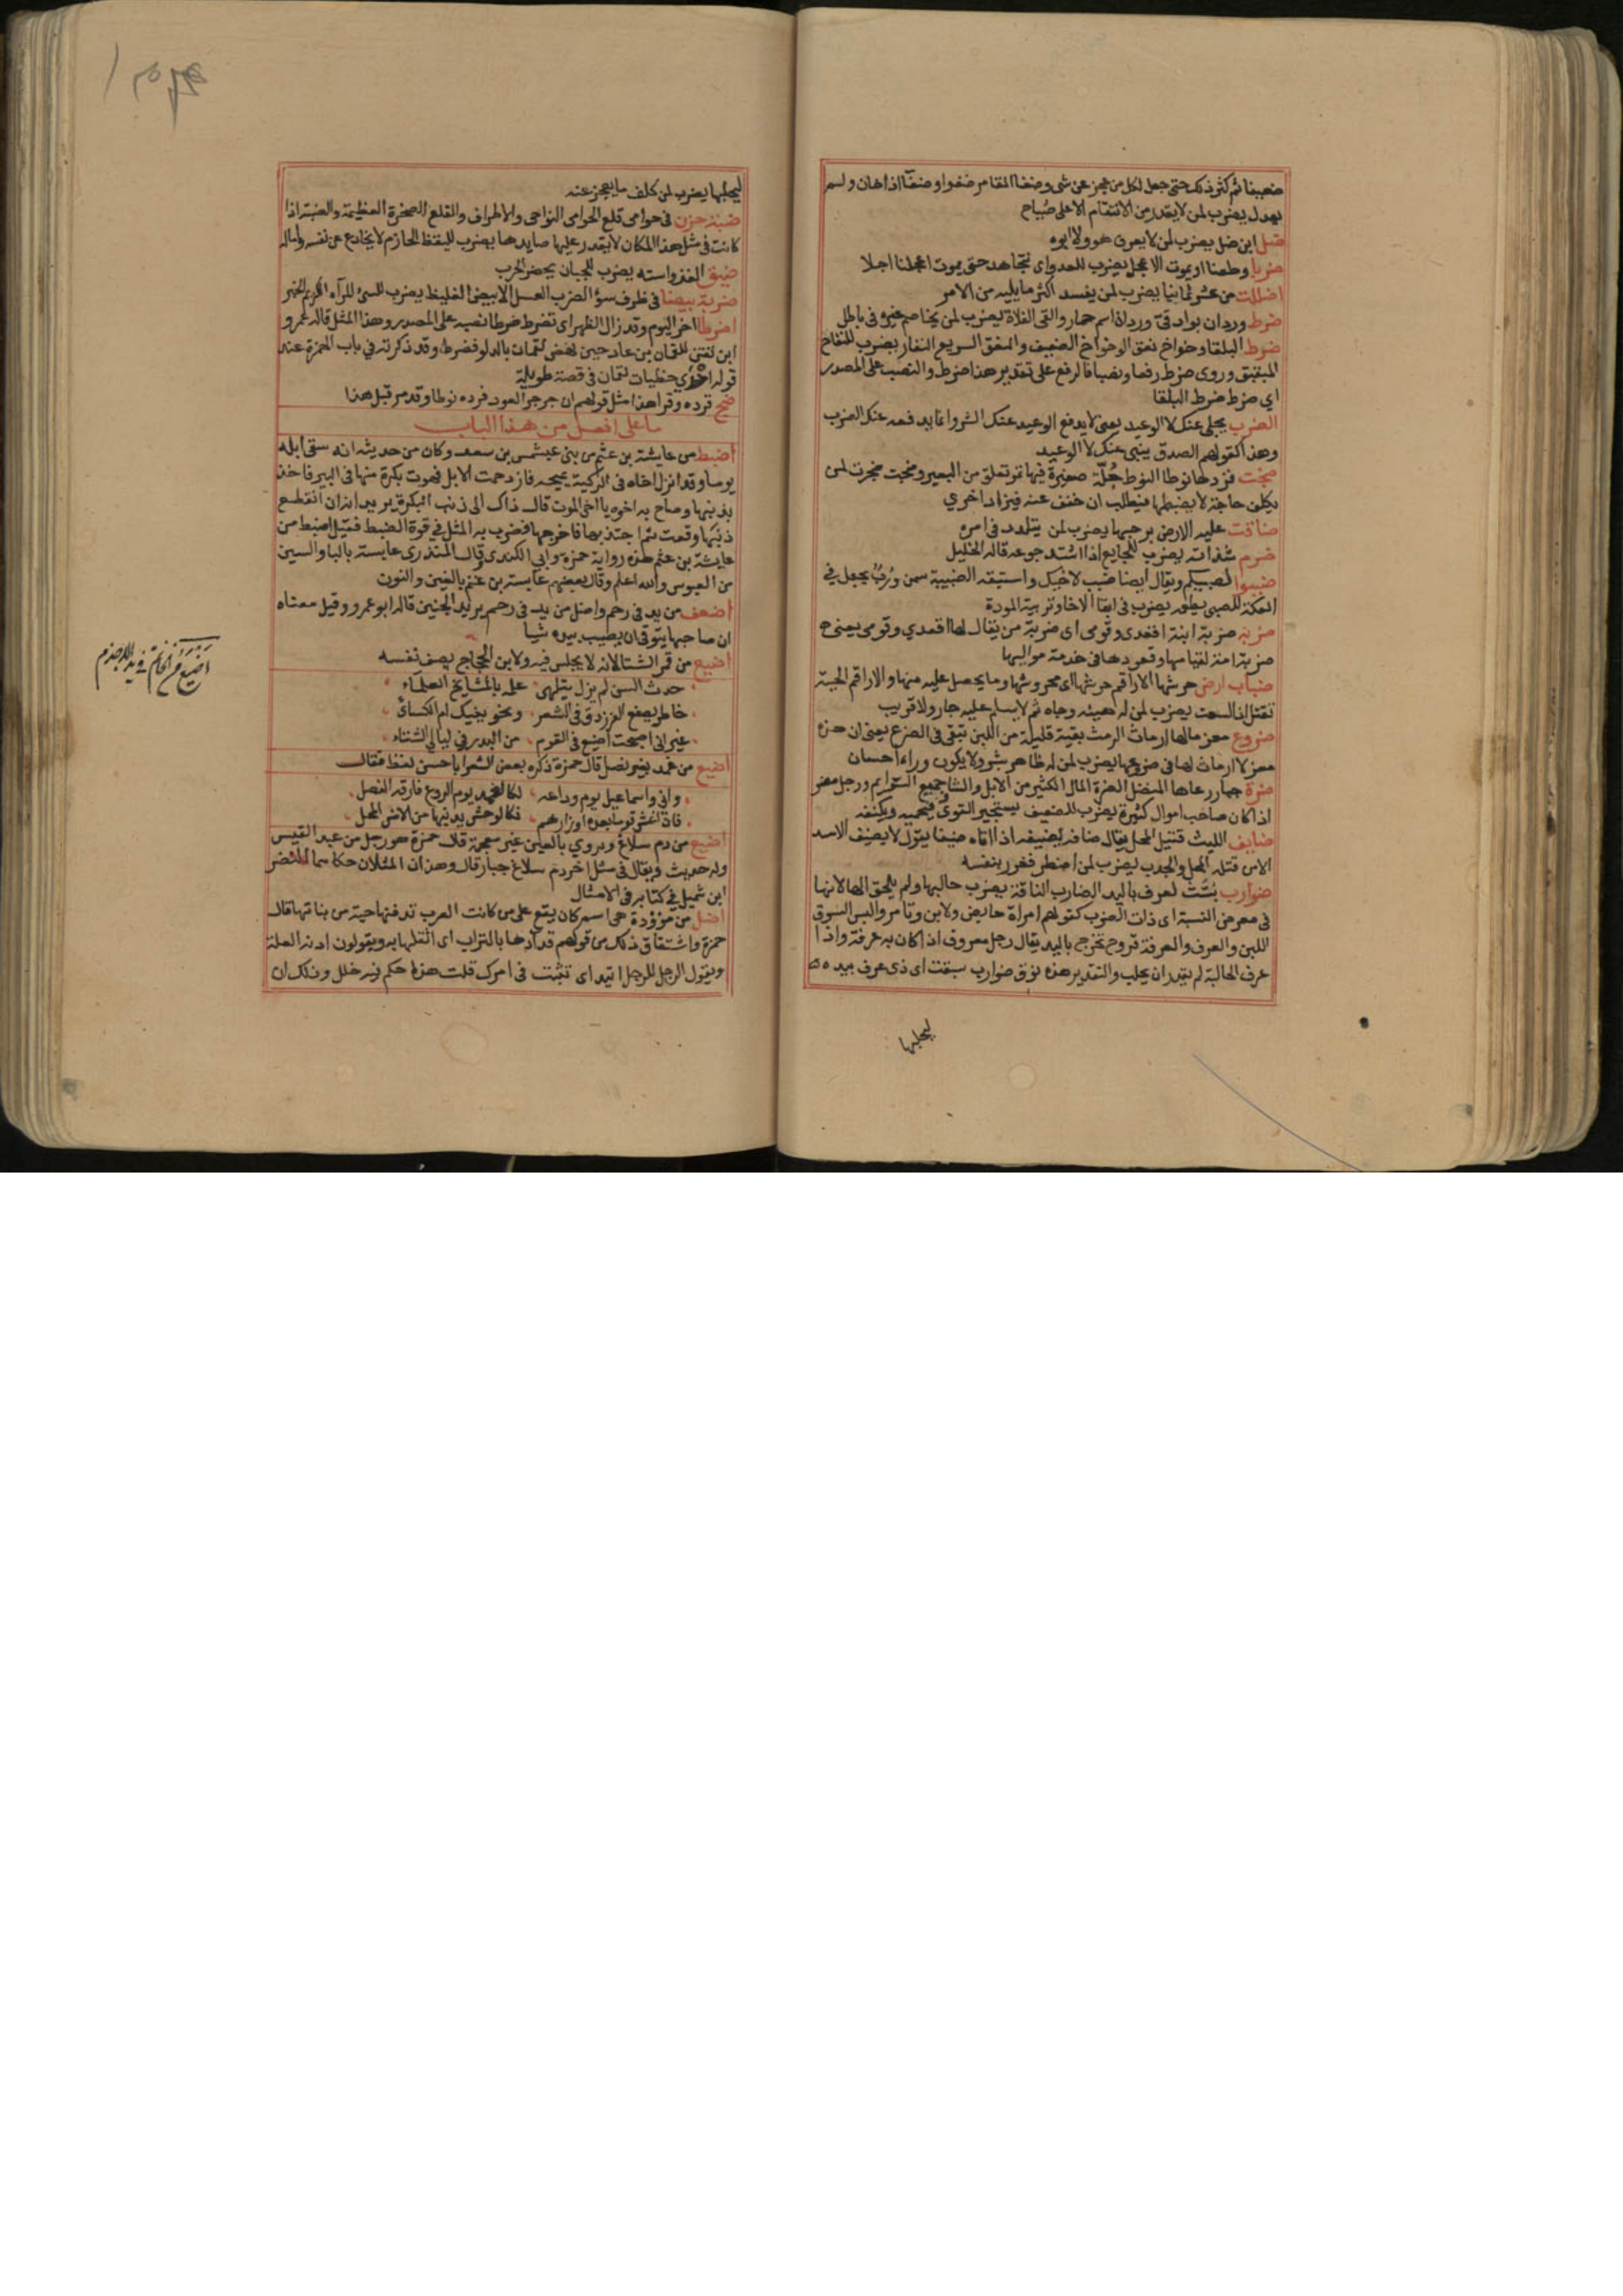 ضعيفا ثم كثر ذلك حتى جعل لكل من عجز عن شى وضغا المقامر ضغوا وضغا اذا خان ولم
يعدل يضرب لمن لا يقدر من الانتقام الا على صياح
ضل ابن ضل يضرب لمن لا يعرف هو ولا ابوه
ضربا وطعنا او يموت الاعجل يضرب للعدو اى نتجاهد حتى يموت اعجلنا اجلا
اضللت من عشر ثمانيا يضرب لمن يفسد اكثر ما يليه من الامر
ضرط وردان بواد قى وردان اسم حمار والقى الفلاة يضرب لمن يخاصم غيره فى باطل
ضرط البلقا وخواخ نفق الوخواخ الضعيف والنفق السريع النفار يضرب للنفاخ
المبقبق وروى ضرط رفعا ونصبا فالرفع على تقدير هذا ضرط والنصب على المصدر
اى ضرط ضرط البلقا
الضرب يجلى عنك لا الوعيد يعنى لا يدفع الوعيد عنك الشر وانما يدفعه عنك الضرب
وهذا كقولهم الصدق ينبى عنك لا الوعيد
ضجت فزدها نوطا النوط جلة صغيرة فيها تمر تعلق من البعير وضجت ضجرت لمن
يكلف حاجة لا يضبطها فيطلب ان خفف عنه فيزاد اخرى
ضاقت عليه الارض برحبها يضرب لمن يتلدد فى امره
ضرم شذاته يضرب للجايع اذا اشتد جوعه قاله الخليل
ضببوا لصبيكم ويقال ايضا ضبب لاخيك واستبقه الضبيبة سمن ورب يجعل فى
العكة للصبى يطعمه يضرب فى ابقا الاخا وتربية المودة
ضربه ضربة ابنة اقعدى وقومى اى ضربة من يقال لها اقعدى وقومى يعنى
ضربة امة لقيامها وقعودها فى خدمة مواليها
ضباب ارض حرشها الاراقم حرشها اى محروشها وما يحصل عليه منها والاراقم الحية
تقتل لها السمت يضرب لمن له هيئه وجاه ثم لا يسلم عليه جار ولا قريب
ضروع معز مالها ارماث الرمث بقية قليلة من اللبن تبقى فى الضرع يعنى ان هذه
معز لا ارماث لها فى ضروعها يضرب لمن له ظاهر بشر ولا يكون وراءه احسان
ضرة جهار رعاها المفضل الضرة المال الكثير من الابل والشا جميع السوايم ورجل مضر
اذا كان صاحب اموال كثيرة يضرب للضعيف يستجير القوى فيحميه ويكنفه
ضايف الليث قتيل المحل يقال ضافه يضيفه اذا اتاه ضيفا يقول لا يضيف الاسد
الا من قتله المحل والجدب يضرب لمن اضطر فغرر بنفسه
ضوارب بنت لعرف باليد الضارب الناقة يضرب حالبها ولم يلحق الها لانها
فى معرض النسبة اى ذات الضرب كقولهم امراة حايض ولابن وتامر والبس السوق
اللبن والعرف والعرفة قروح تخرج باليد يقال رجل معروف اذا كان به عرفة واذا
عرف الحالبة لم يقدر ان يحلب والتقدير هذه نوق ضوارب سبقت اى ذى عرف بيده
ليحلبها
ليحلبها يضرب لمن كلف ما يعجز عنه
ضبة حزن فى حوامى قلع الحوامى النواحى والاطراف والقلع الصخرة العظيمة والضبة اذا
كانت فى مثل هذا المكان لا يقدر عليها صايدها يضرب لليقظ الحازم لا يخادع عن نفسه وماله
ضيق الغذر استه يضرب للجبان يحضر الحرب
ضربة بيضا فى ظرف سؤ الضرب العسل الابيض الغليظ يضرب للسئ المرآه الكريم الخبر
اضرطا اخر اليوم وقد زال الظهر اى تضرط ضرطا نصبه على المصدر وهذا المثل قاله عمرو
ابن تقن للقمان بن عاد حين نهض لقمان بالدلو فضرط وقد ذكرته فى باب الهمزة عند
قوله احدى حظيات لقمان فى قصة طويلة
ضج فزده وقرا هذا مثل قولهم ان جرجر العود فزده نوطا وقد مر قبل هذا
ما على افعل من هذا الباب
اضبط من عايشة بن عثم من بنى عبشمس بن سعد وكان من حديثه انه سقى ابله
يوما وقد انزل اخاه فى الركية يميحه فازدحمت الابل فهوت بكرة منها فى البير فاخذ
بذنبها وصاح به اخوه يا اخى الموت قال ذاك الى ذنب البكرة يريد انه ان انقطع
ذنبها وقعت ثم اجتذبها فاخرجها فضرب به المثل فى قوة الضبط فقيل اضبط من
عايشة بن عثم هذه رواية حمزة وابى الكندى وقال المنذرى عابسة بالبا والسين
من العبوس والله اعلم وقال بعضهم عابسة بن غنم بالغين والنون
اضعف من يد فى رحم واضل من يد فى رحم يريد الجنين قاله ابو عمرو وقيل معناه
ان صاحبها يتوقى ان يصيب بيده شيا
اضيع من قمر الشتا لانه لا يجلس فيه ولابن الحجاج يصف نفسه
حدث السن لم يزل يتلهى علمه بالمشايخ العلماء
خاطر يصفع الفرزدق فى الشعر ونحو ينيك ام الكسائى
غير انى اصبحت اضيع فى القوم من البدر فى ليالى الشتاء
اضيع من غمد بغير نصل قال حمزة ذكره بعض الشعرا باحسن لفظ فقال
وانى واسماعيل يوم وداعه لكالغمد يوم الروع فارقه النصل
فان اغش قوما بعده او ازرهم فكالوحش يدنيها من الانس المحل
اضيع من دم سلاغ ويروى بالعين غير معجمة قال حمزة هو رجل من عبد القيس
وله حديث ويقال فى مثل اخر دم سلاغ جبار قال وهذان المثلان حكاهما النضر
ابن شميل فى كتابه فى الامثال
اضل من موؤدة هى اسم كان يقع على من كانت العرب تدفنها حية من بناتها قال
حمزة واشتقاق ذلك من قولهم قد آدها بالتراب اى اثقلها به ويقولون ادته العلة
ويقول الرجل للرجل اتيد اى تثبت فى امرك قلت هذا حكم فيه خلل وذلك ان
اضيع من الخاتم فى يد الاجذم